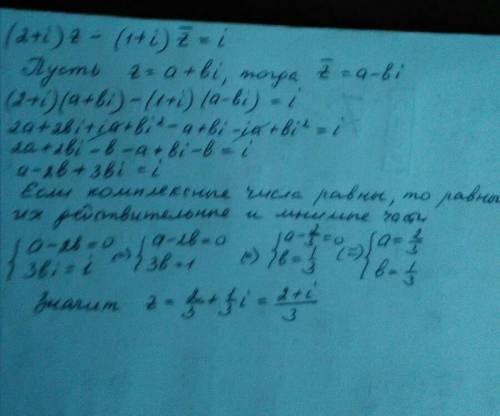 (2+i)z - (1+i)z̄ = i
Пусть z = a + bi, тогда z̄ = a - bi
(2+i)(a+bi) - (1+i)(a-bi) = i
2a + 2bi + ia + bi² - a + bi - ia + bi² = i
2a + 2bi - b - a + bi - b = i
a - 2b + 3bi = i
Если комплексные числа равны, то равны
их действительные и мнимые части
{a - 2b = 0 {a - 2b = 0 {a - 2/3 = 0 {a = 2/3
{3bi = i (=) {3b = 1 (=) {b = 1/3 (=) {b = 1/3
Значит z = 2/3 + 1/3 i = (2+i)/3